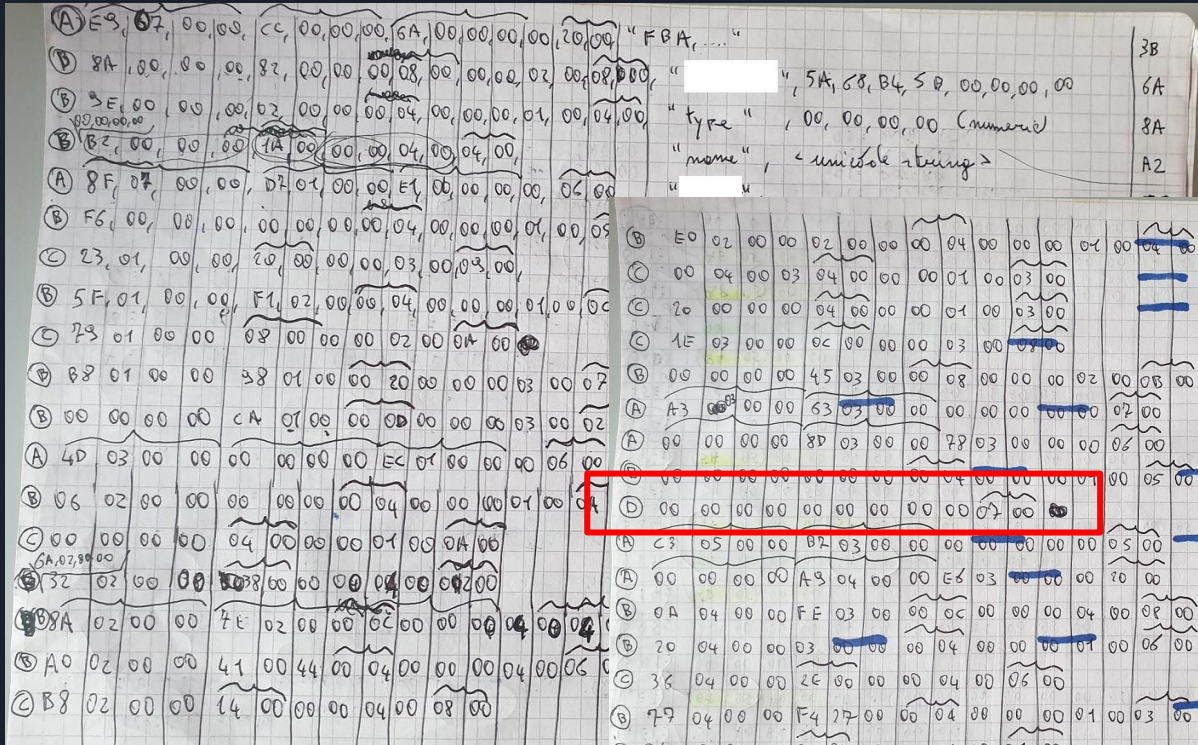 Ⓐ E9, 07, 00, 00, CC, 00, 00, 00, 6A, 00, 00, 00, 00, 20, 00, "FBA, ...."
Ⓑ 8A, 00, 00, 00, 82, 00, 00, 00, 08, 00, 00, 00, 02, 00, 08, 00, " ", 5A, 68, B4, 50, 00, 00, 00, 00
Ⓑ 9E, 00, 00, 00, 02, 00, 00, 00, 04, 00, 00, 00, 01, 00, 04, 00, "type", 00, 00, 00, 00 (numeric)
00,00,00,00
Ⓑ B2, 00, 00, 00, 1A, 00, 00, 00, 04, 00, 04, 00, "name", <unicode string>
Ⓐ 8F, 07, 00, 00, D7, 01, 00, 00, E1, 00, 00, 00, 00, 06, 00
Ⓑ F6, 00, 00, 00, 00, 00, 00, 00, 04, 00, 00, 00, 01, 00, 05
Ⓒ 23, 01, 00, 00, 20, 00, 00, 00, 03, 00, 09, 00,
Ⓑ 5F, 01, 00, 00, F1, 02, 00, 00, 04, 00, 00, 00, 01, 00, 0C
Ⓒ 79 01 00 00 08 00 00 00 02 00 0A 00
Ⓑ B8 01 00 00 98 01 00 00 20 00 00 00 03 00 07
Ⓑ 00 00 00 00 CA 01 00 00 0D 00 00 00 03 00 02
Ⓐ 4D 03 00 00 00 00 00 00 EC 01 00 00 00 06 00
Ⓑ 06 02 00 00 00 00 00 00 04 00 00 00 01 00 0A
Ⓒ 00 00 00 00 04 00 00 00 01 00 0A 00
6A, 02, 00 00
32 02 00 00 38 00 00 00 04 00 02 00
8A 02 00 00 7E 02 00 00 0C 00 00 00 04 00 04
Ⓑ A0 02 00 00 41 00 44 00 04 00 00 00 04 00 06
Ⓒ B8 02 00 00 14 00 00 00 04 00 08 00
3B
6A
8A
A2
Ⓑ E0 02 00 00 02 00 00 00 04 00 00 00 01 00 04 00
Ⓒ 00 04 00 03 04 00 00 00 01 00 03 00
Ⓒ 20 00 00 00 04 00 00 00 01 00 03 00
Ⓒ 1E 03 00 00 0C 00 00 00 03 00 08 00
Ⓑ 00 00 00 00 45 03 00 00 08 00 00 00 02 00 0B 00
Ⓐ A3 03 00 00 63 03 00 00 00 00 00 00 00 07 00
Ⓐ 00 00 00 00 8D 03 00 00 78 03 00 00 00 06 00
00 00 00 00 00 00 00 00 04 00 00 00 01 00 05 00
Ⓓ 00 00 00 00 00 00 00 00 00 07 00
Ⓐ C3 05 00 00 B7 03 00 00 00 00 00 00 00 05 00
Ⓐ 00 00 00 00 A9 04 00 00 E6 03 00 00 00 20 00
Ⓑ 0A 04 00 00 FE 03 00 00 0C 00 00 00 04 00 08 00
Ⓑ 20 04 00 00 03 00 00 00 04 00 00 00 01 00 06 00
Ⓒ 36 04 00 00 2E 00 00 00 04 00 06 00
Ⓑ 77 04 00 00 F4 27 00 00 04 00 00 00 01 00 03 00